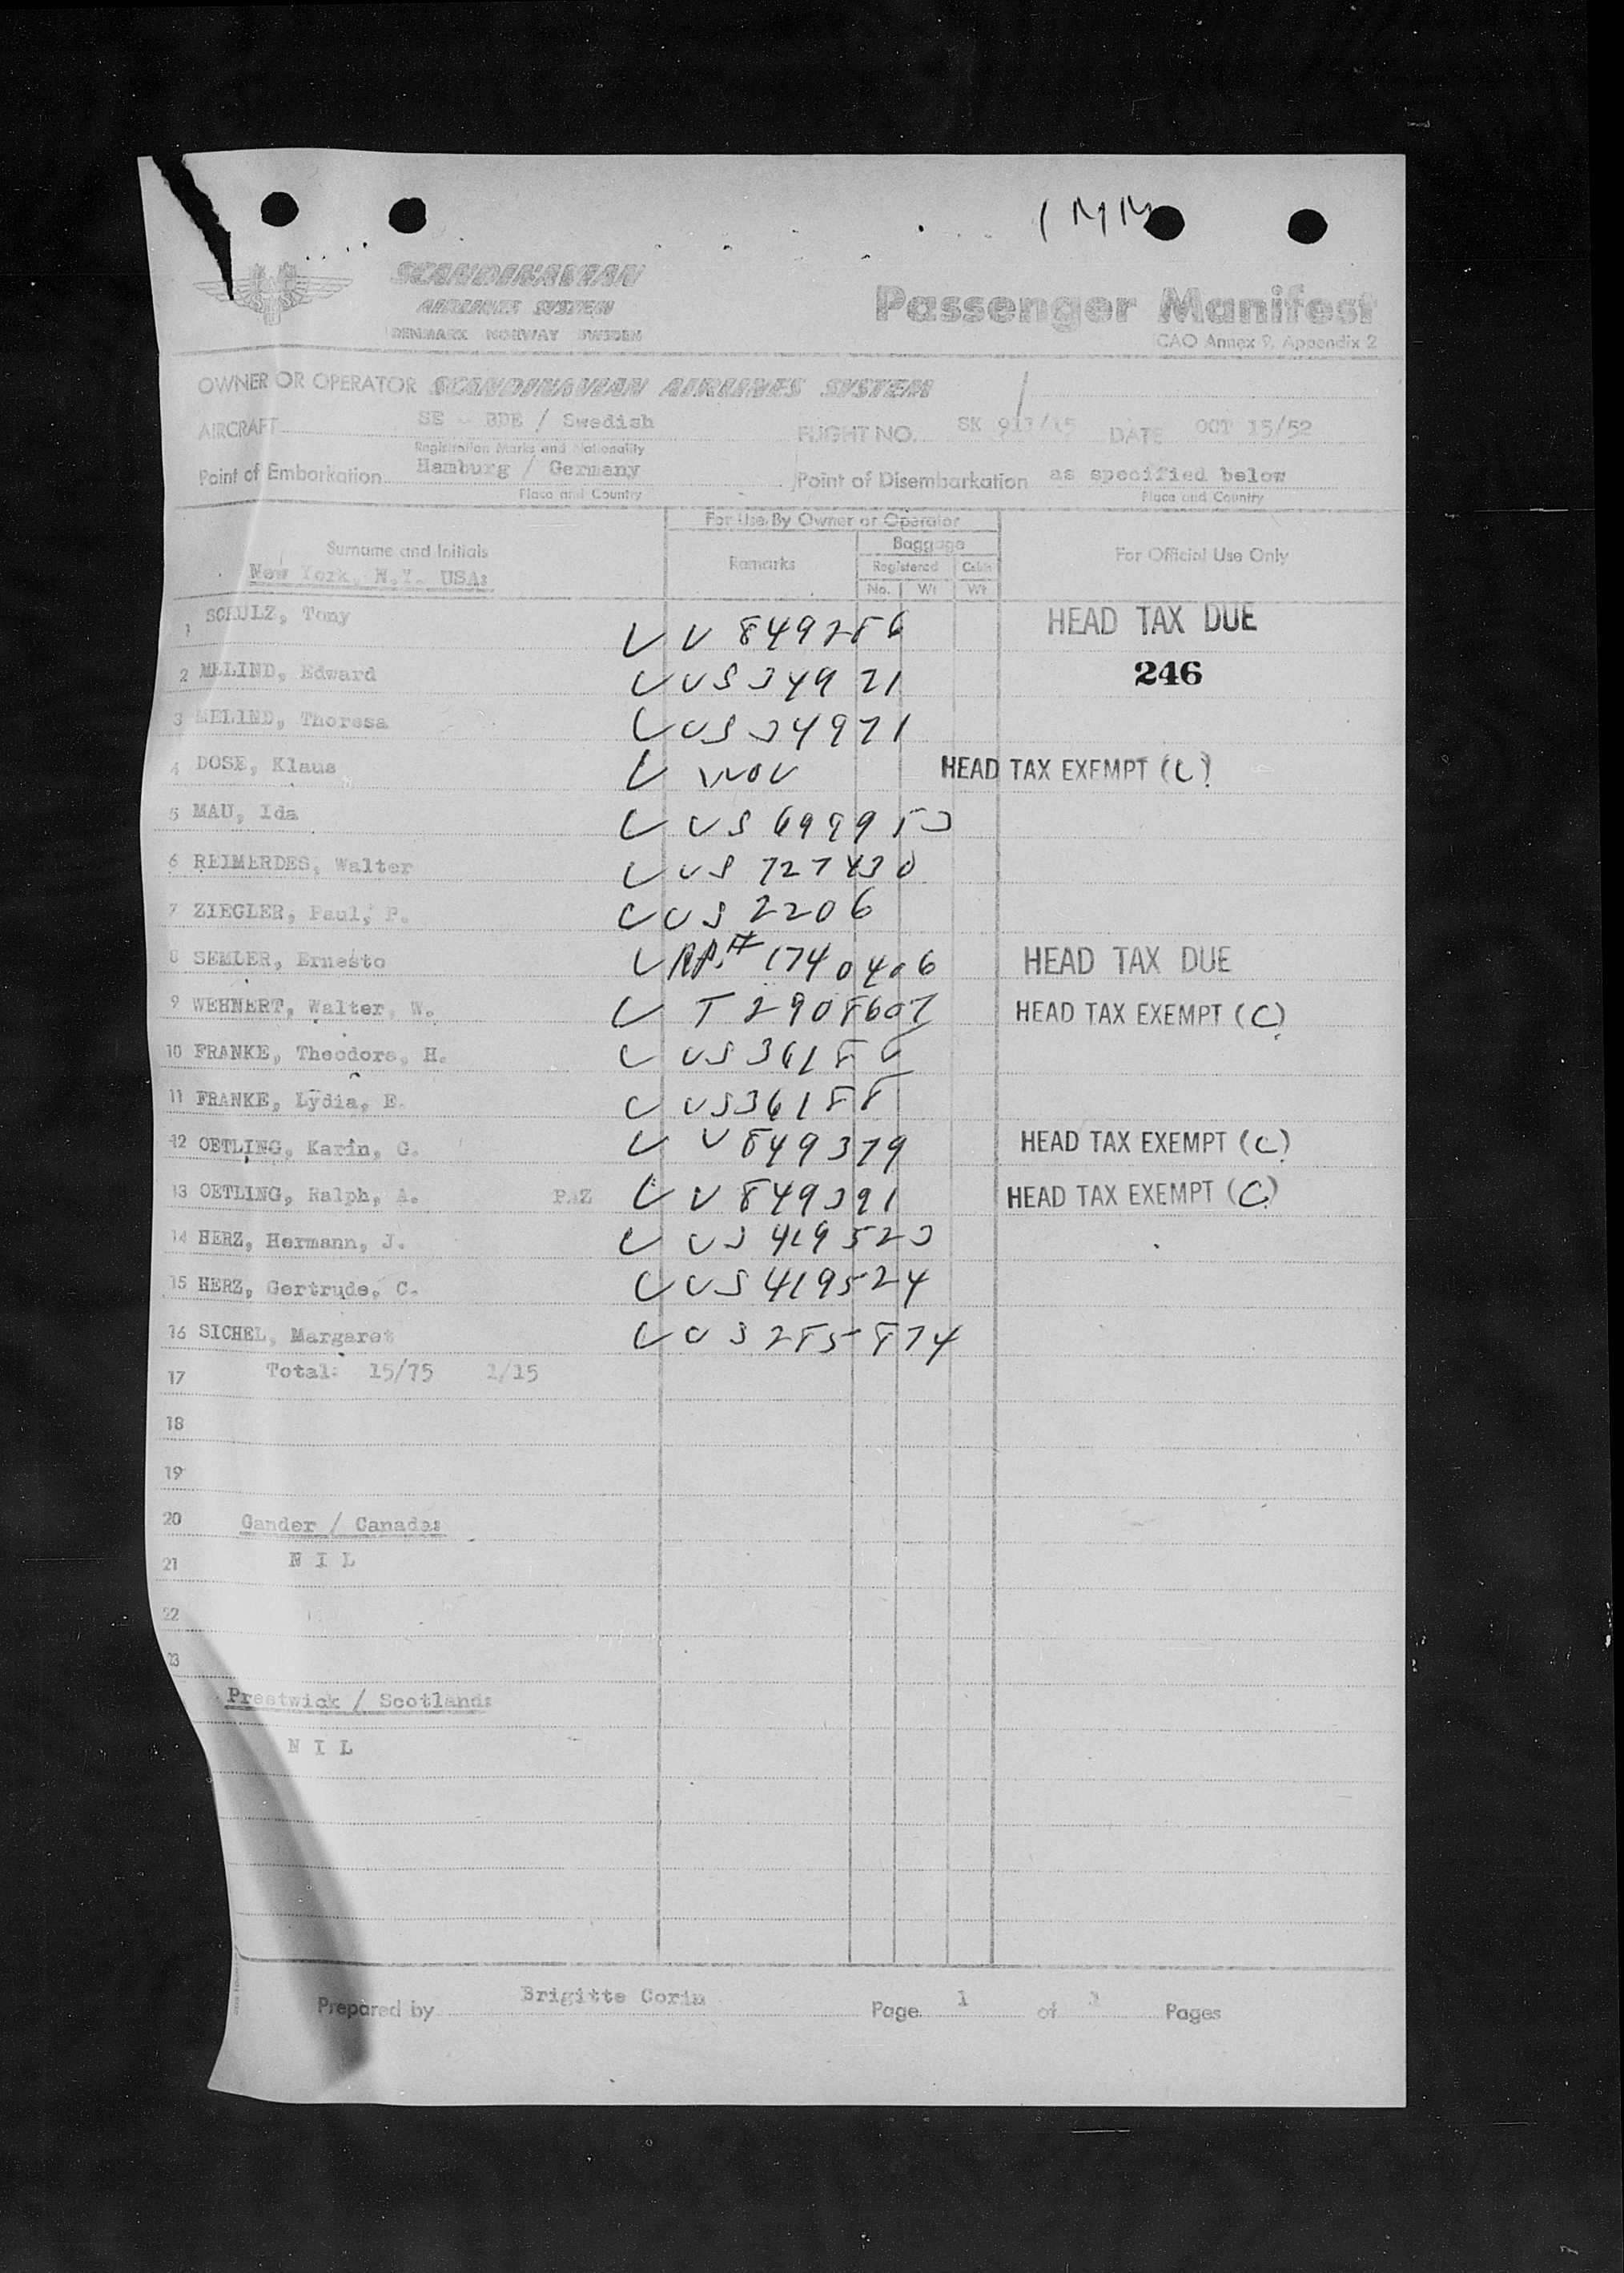 IMM
SCANDINAVIAN
AIRLINES SYSTEM
DENMARK NORWAY SWEDEN
Passenger Manifest
ICAO Annex 9, Appendix 2
OWNER OR OPERATOR SCANDINAVIAN AIRLINES SYSTEM
AIRCRAFT SE - BDE / Swedish FLIGHT NO. SK 911/15 DATE OCT 15/52
Registration Marks and Nationality
Point of Embarkation Hamburg / Germany Point of Disembarkation as specified below
Place and Country Place and Country
For Use By Owner or Operator
Surname and Initials Remarks Baggage For Official Use Only
Registered Cabin
New York, N.Y. USA: No. Wt Wt
1 SCHULZ, Tony V 849286 HEAD TAX DUE
2 MELIND, Edward US 34921 246
3 MELIND, Theresa US 34921
4 DOSE, Klaus HEAD TAX EXEMPT (C)
5 MAU, Ida US
6 REIMERDES, Walter US 727430
7 ZIEGLER, Paul, P. US 2206
8 SEMLER, Ernesto 1740406 HEAD TAX DUE
9 WEHNERT, Walter, W. T 2908607 HEAD TAX EXEMPT (C)
10 FRANKE, Theodore, H. US
11 FRANKE, Lydia, E. US 36188
12 OETLING, Karin, G. V 849379 HEAD TAX EXEMPT (C)
13 OETLING, Ralph, A. PAZ V 849391 HEAD TAX EXEMPT (C)
14 HERZ, Hermann, J. US 419523
15 HERZ, Gertrude, C. US 419524
16 SICHEL, Margaret US 285874
17 Total: 15/75 1/15
18
19
20 Gander / Canada:
21 N I L
22
23
Prestwick / Scotland:
N I L
Prepared by Brigitte Corin Page 1 of 3 Pages